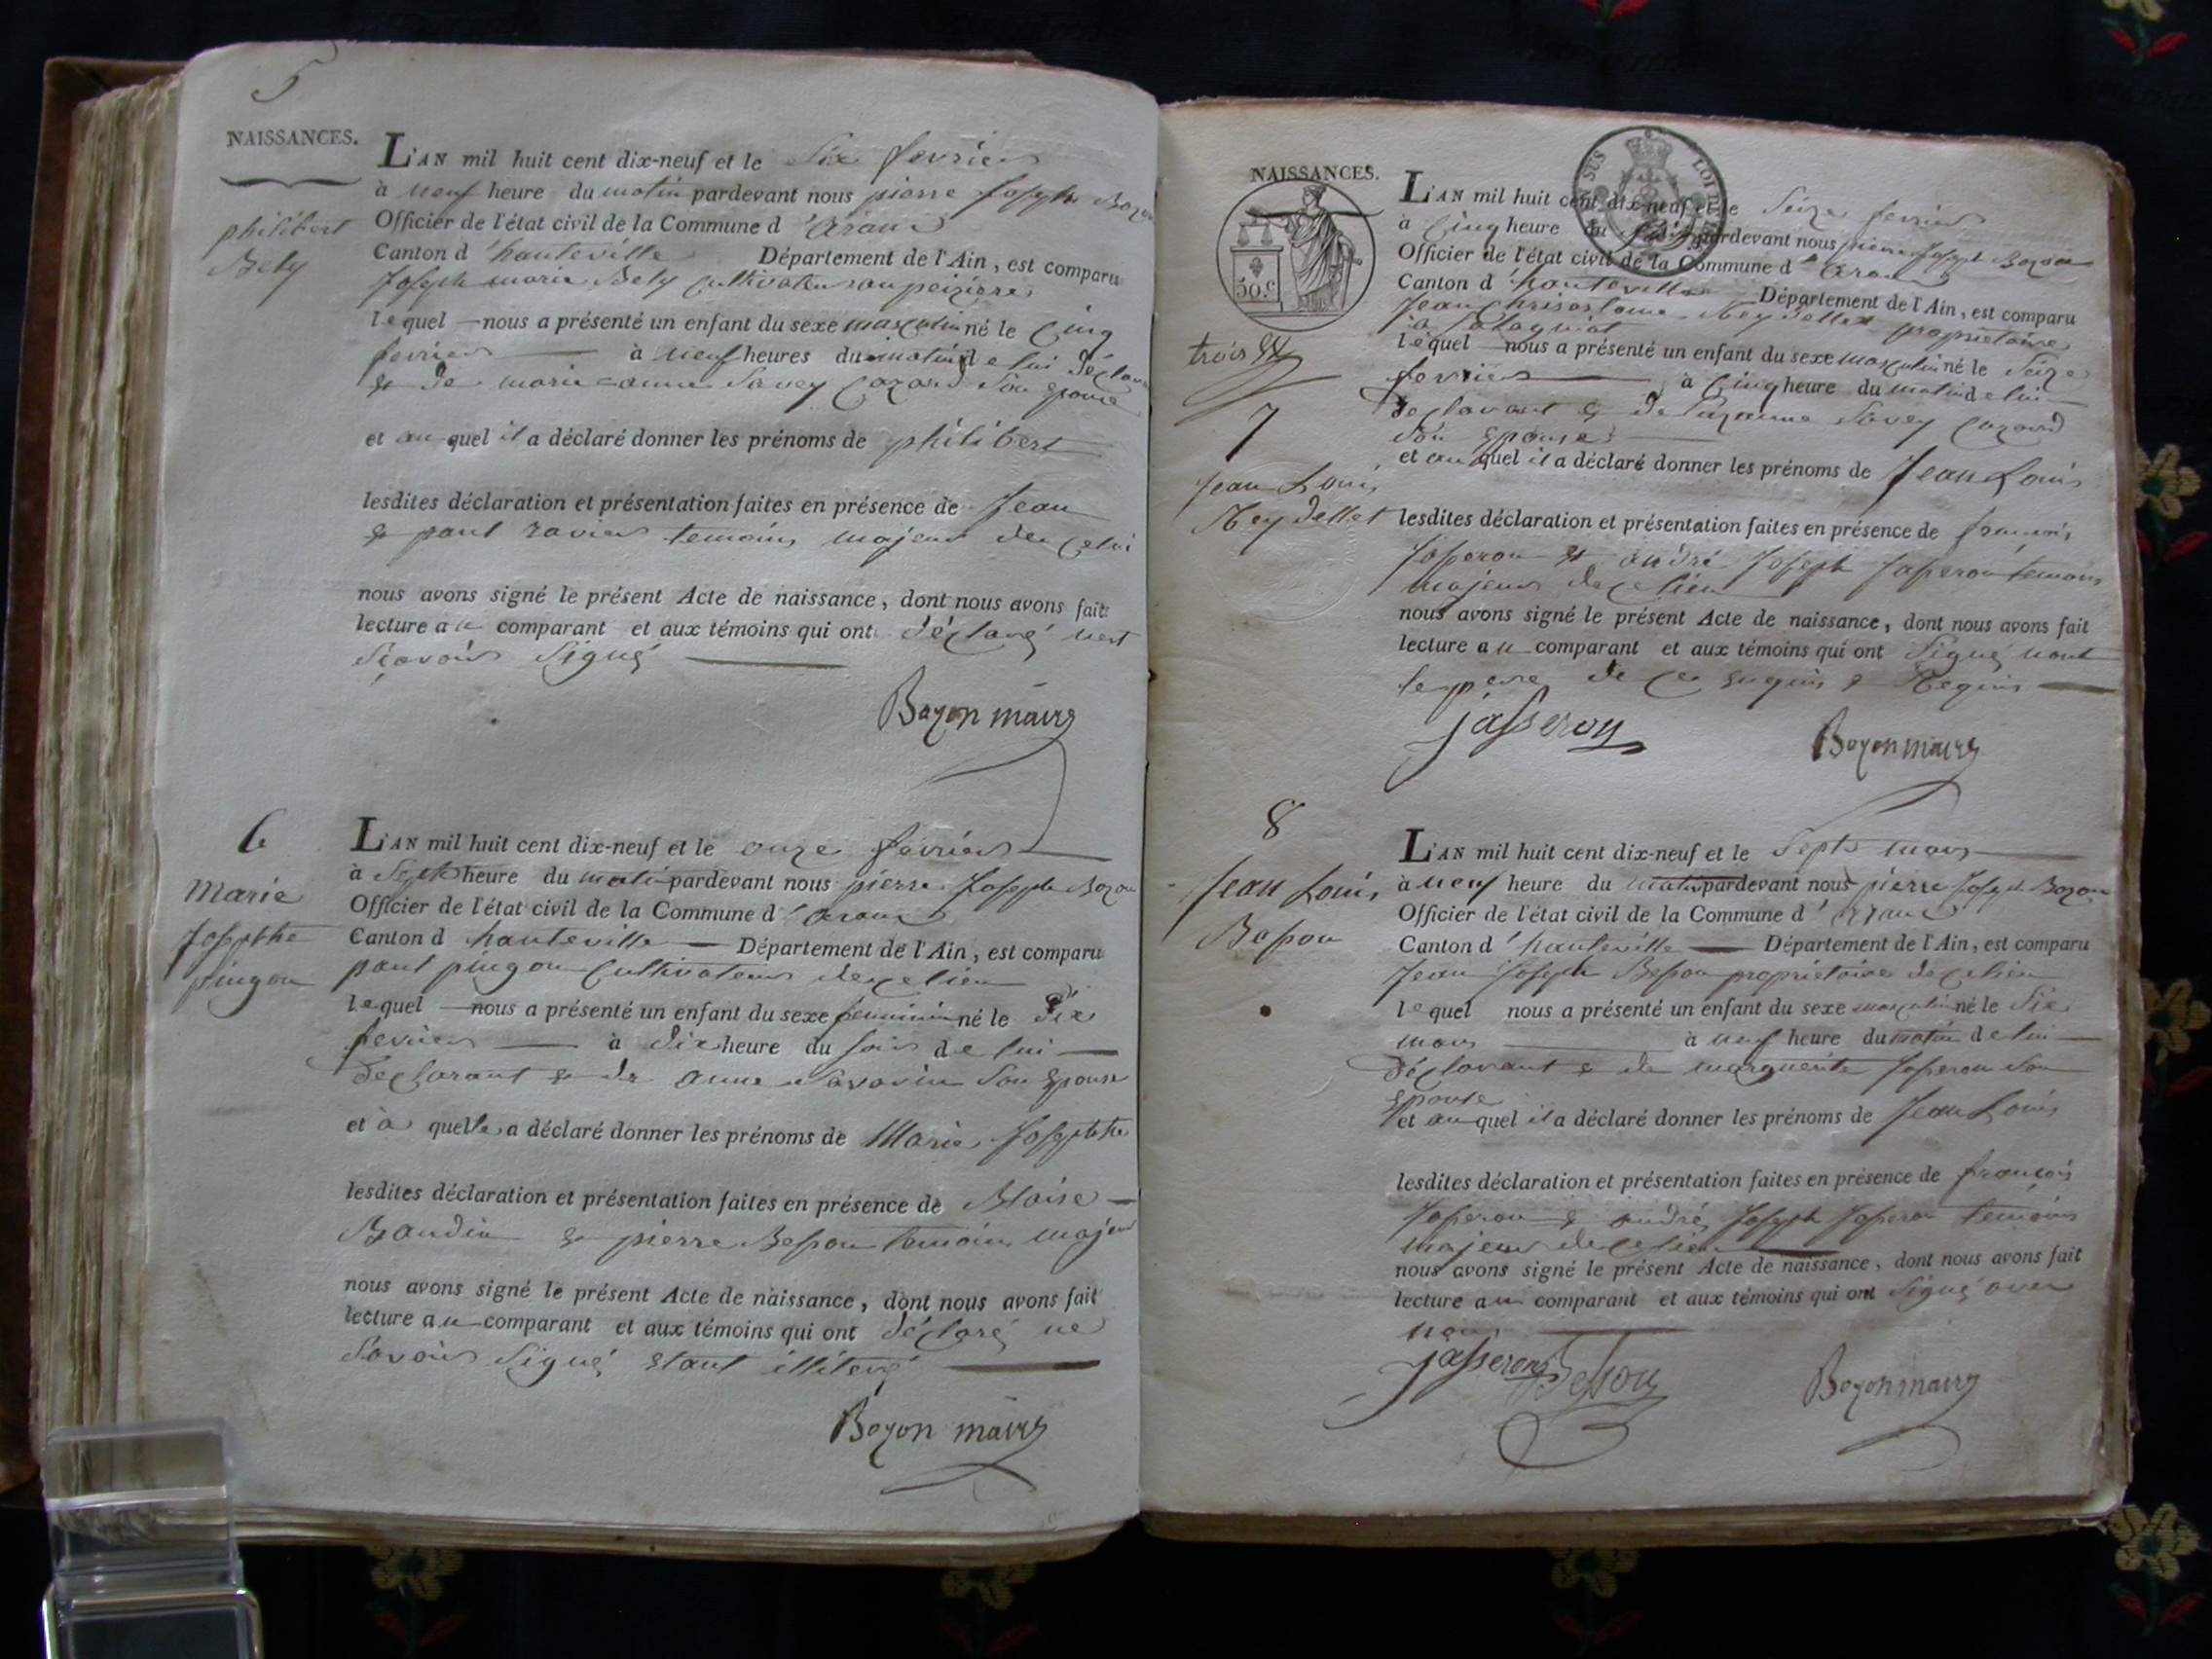 5
NAISSANCES.
philibert
Bely
L'AN mil huit cent dix-neuf et le six fevrier
à neuf heure du matin pardevant nous pierre Joseph Bozon
Officier de l'état civil de la Commune d'aranc
Canton d'hauteville Département de l'Ain, est comparu
Joseph marie Bely cultivateur
lequel nous a présenté un enfant du sexe masculin né le cinq
fevrier à neuf heures du matin de lui déclarant
& de marie anne Savey Cazard son epouse
et au quel il a déclaré donner les prénoms de philibert
lesdites déclaration et présentation faites en présence de Jean
& paul ravier temoins majeur de
nous avons signé le présent Acte de naissance, dont nous avons fait
lecture au comparant et aux témoins qui ont déclaré
signé
Bozon maire
6
marie
Josephte
pingon
L'AN mil huit cent dix-neuf et le onze fevrier
à sept heure du matin pardevant nous pierre Joseph Bozon
Officier de l'état civil de la Commune d'aranc
Canton d'hauteville Département de l'Ain, est comparu
paul pingon cultivateur de ce lieu
lequel nous a présenté un enfant du sexe féminin né le dix
fevrier à dix heure du soir de lui
declarant & de anne Savarin son epouse
et à quelle a déclaré donner les prénoms de Marie Josephte
lesdites déclaration et présentation faites en présence de Blaise
Baudin & pierre Besson temoins majeur
nous avons signé le présent Acte de naissance, dont nous avons fait
lecture au comparant et aux témoins qui ont déclaré ne
savoir signé etant illiteré
Bozon maire
NAISSANCES.
50.c
SUS LOI
trois
7
Jean Louis
Neydellet
L'AN mil huit cent dix-neuf et le seize fevrier
à cinq heure du soir pardevant nous pierre Joseph Bozon
Officier de l'état civil de la Commune d'aranc
Canton d'hauteville Département de l'Ain, est comparu
Jean Chrisostome Neydellet propriétaire
lequel nous a présenté un enfant du sexe masculin né le seize
fevrier à cinq heure du matin de lui
declarant & de Suzanne Savey Cazard
son epouse
et au quel il a déclaré donner les prénoms de Jean Louis
lesdites déclaration et présentation faites en présence de françois
Josseron & andré Joseph Josseron temoins
majeurs de ce lieu
nous avons signé le présent Acte de naissance, dont nous avons fait
lecture au comparant et aux témoins qui ont signé
le pere de ce enquis & Requis
jasseron
Bozon maire
8
Jean Louis
Besson
L'AN mil huit cent dix-neuf et le sept mars
à neuf heure du matin pardevant nous pierre Joseph Bozon
Officier de l'état civil de la Commune d'aranc
Canton d'hauteville Département de l'Ain, est comparu
Jean Joseph Besson proprietaire de ce lieu
lequel nous a présenté un enfant du sexe masculin né le six
mars à neuf heure du matin de lui
déclarant & de marguerite Josseron son
epouse
et au quel il a déclaré donner les prénoms de Jean Louis
lesdites déclaration et présentation faites en présence de françois
Josseron & andré Joseph Josseron temoins
majeur de ce lieu
nous avons signé le présent Acte de naissance, dont nous avons fait
lecture au comparant et aux témoins qui ont signé avec
nous
jasseron Besson
Bozon maire